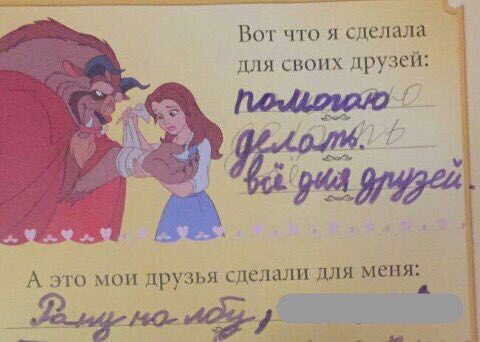 Вот что я сделала
для своих друзей:
помогаю
делать.
всё для друзей.
А это мои друзья сделали для меня:
Рану на лбу,